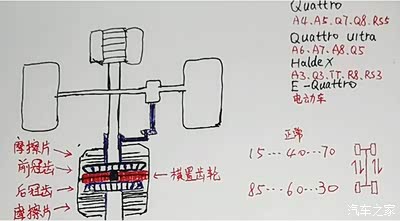 Quattro
A4.A5.Q7.Q8.RS5
Quattro ultra
A6.A7.A8.Q5
Haldex
A3.Q3.TT.R8.RS3
E-Quattro
电动车
正常
15...40...70
85...60...30
摩擦片
前冠齿
后冠齿
摩擦片
横置齿轮
汽车之家